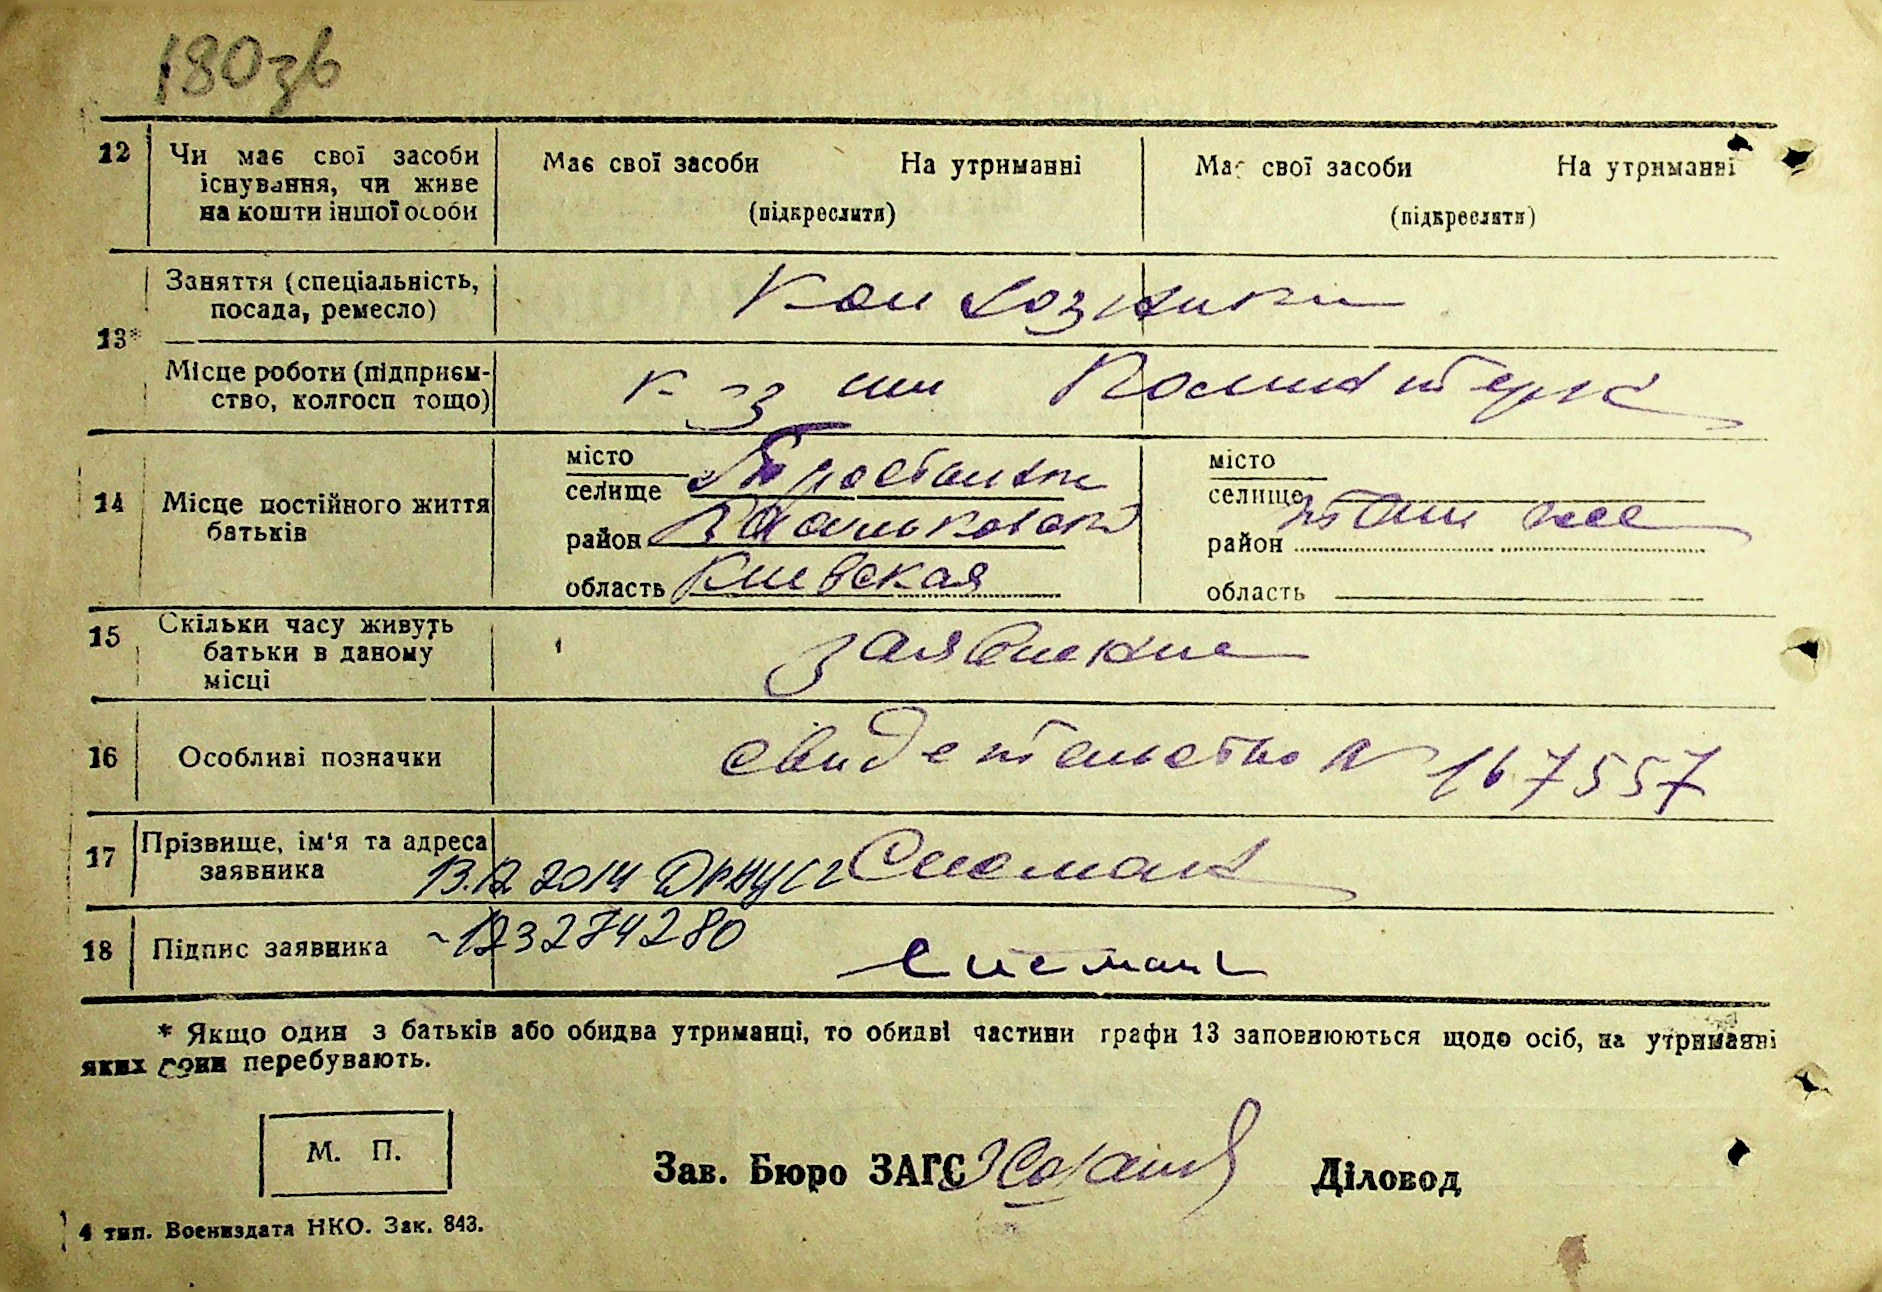 180зв
12 Чи має свої засоби існування, чи живе на кошти іншої особи
Має свої засоби На утриманні
(підкреслити)
Має свої засоби На утриманні
(підкреслити)
13* Заняття (спеціальність, посада, ремесло)
Колхозники
Місце роботи (підприєм-
ство, колгосп тощо)
к-з им Коминтерна
14 Місце постійного життя батьків
місто
селище
район
область Киевская
місто
селище
там же
район
область
15 Скільки часу живуть батьки в даному місці
16 Особливі позначки
свидетельство N 167557
17 Прізвище, ім'я та адреса заявника
13.12 2014
18 Підпис заявника
123274280
* Якщо один з батьків або обидва утриманці, то обидві частини графи 13 заповнюються щодо осіб, на утриманні
яких вони перебувають.
М. П.
Зав. Бюро ЗАГС
Діловод
4 тип. Воениздата НКО. Зак. 843.